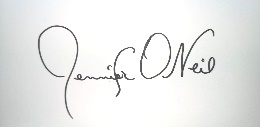 Jennifer O'Neil